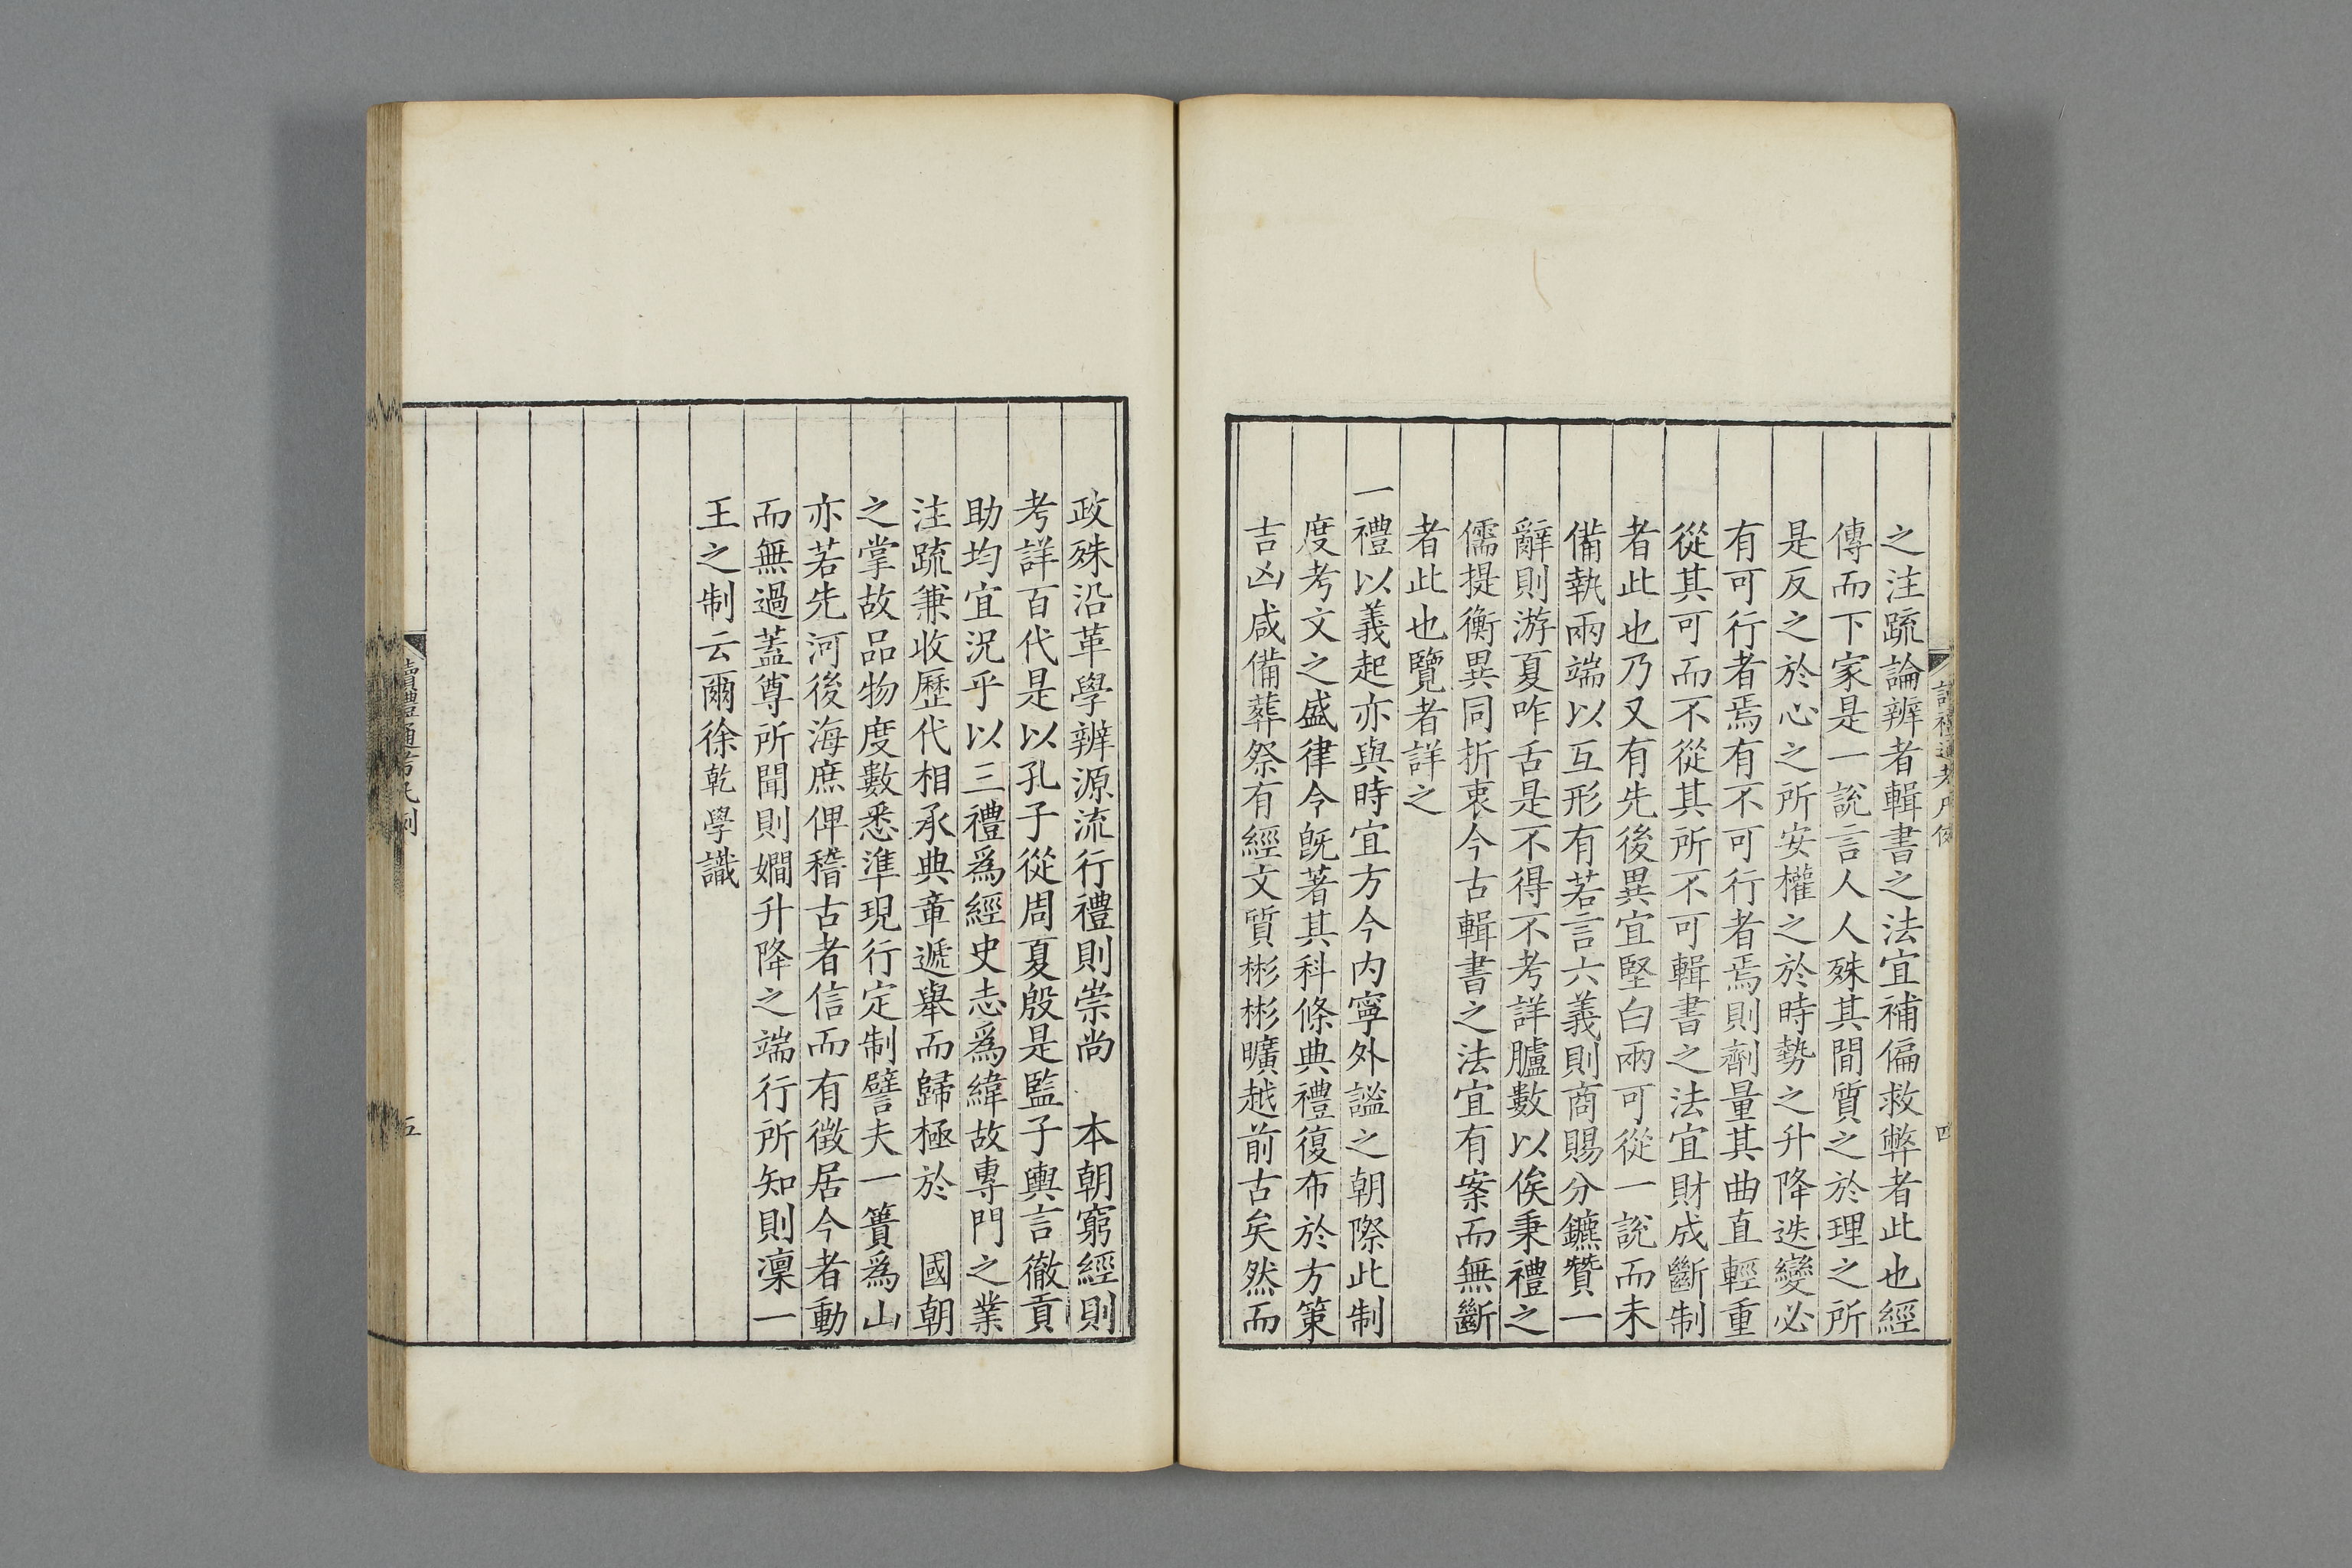 之注疏論辨者輯書之法宜補偏救弊者此也經
傳而下家是一說言人人殊其間質之於理之所
是反之於心之所安權之於時勢之升降迭變必
有可行者焉有不可行者焉則劑量其曲直輕重
從其可而不從其所不可輯書之法宜財成斷制
者此也乃又有先後異宜堅白兩可從一說而未
備執兩端以互形有若言六義則商賜分鑣贊一
辭則游夏咋舌是不得不考詳臚數以俟秉禮之
儒提衡異同折衷今古輯書之法宜有案而無斷
者此也覽者詳之
一禮以義起亦與時宜方今内寧外謐之朝際此制
度考文之盛律令既著其科條典禮復布於方策
吉凶咸備葬祭有經文質彬彬曠越前古矣然而
政殊沿革學辨源流行禮則崇尚　本朝窮經則
考詳百代是以孔子從周夏殷是監子輿言徹貢
助均宜況乎以三禮爲經史志爲緯故專門之業
注疏兼收歷代相承典章遞舉而歸極於　國朝
之掌故品物度數悉準現行定制譬夫一簣爲山
亦若先河後海庶俾稽古者信而有徵居今者動
而無過蓋尊所聞則嫺升降之端行所知則凜一
王之制云爾徐乾學識
讀禮通考凡例
五